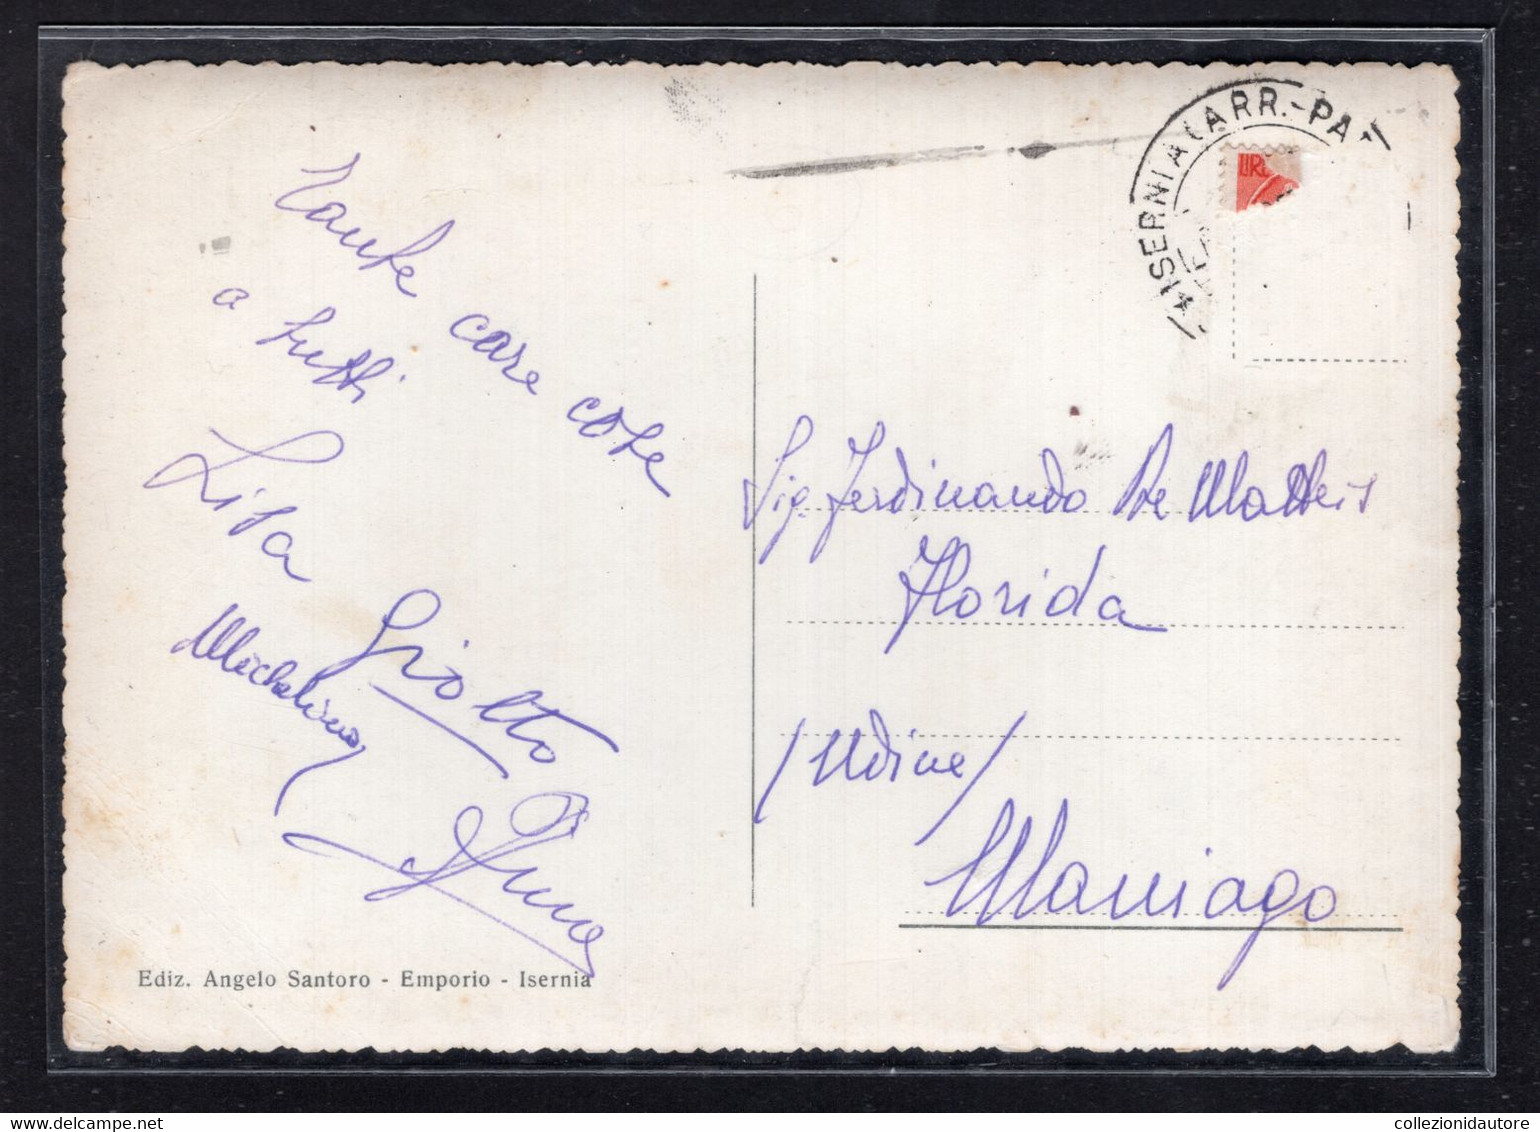 Tante care cose
a tutti
Lisa
Giotto
Michelina
Ediz. Angelo Santoro - Emporio - Isernia
ISERNIA (ARR.-PA
LIRE
Sig. Ferdinando De Matteis
Florida
(Udine)
Maniago
collezionidautore